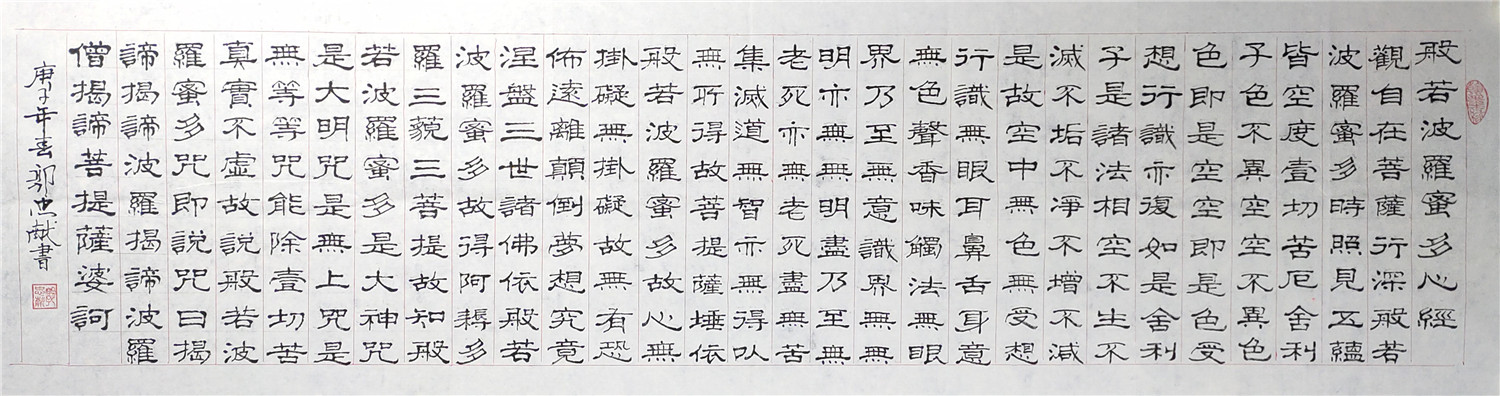 般若波羅蜜多心經
觀自在菩薩行深般若
波羅蜜多時照見五蘊
皆空度壹切苦厄舍利
子色不異空空不異色
色即是空空即是色受
想行識亦復如是舍利
子是諸法相空不生不
滅不垢不淨不增不減
是故空中無色無受想
行識無眼耳鼻舌身意
無色聲香味觸法無眼
界乃至無意識界無無
明亦無無明盡乃至無
老死亦無老死盡無苦
集滅道無智亦無得以
無所得故菩提薩埵依
般若波羅蜜多故心無
掛礙無掛礙故無有恐
佈遠離顛倒夢想究竟
涅盤三世諸佛依般若
波羅蜜多故得阿耨多
羅三藐三菩提故知般
若波羅蜜多是大神咒
是大明咒是無上咒是
無等等咒能除壹切苦
真實不虛故說般若波
羅蜜多咒即說咒曰揭
諦揭諦波羅揭諦波羅
僧揭諦菩提薩婆訶
庚子年春忠献書